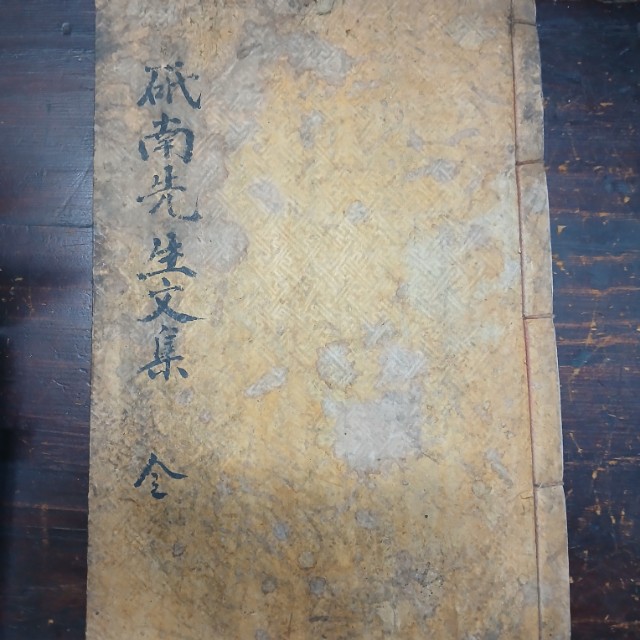 砥南先生文集 全